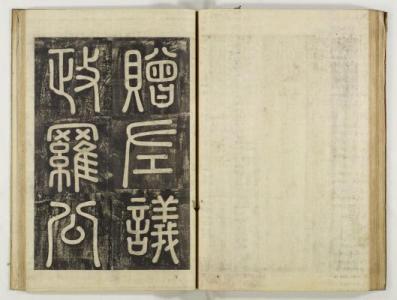 贈左議
政羅公